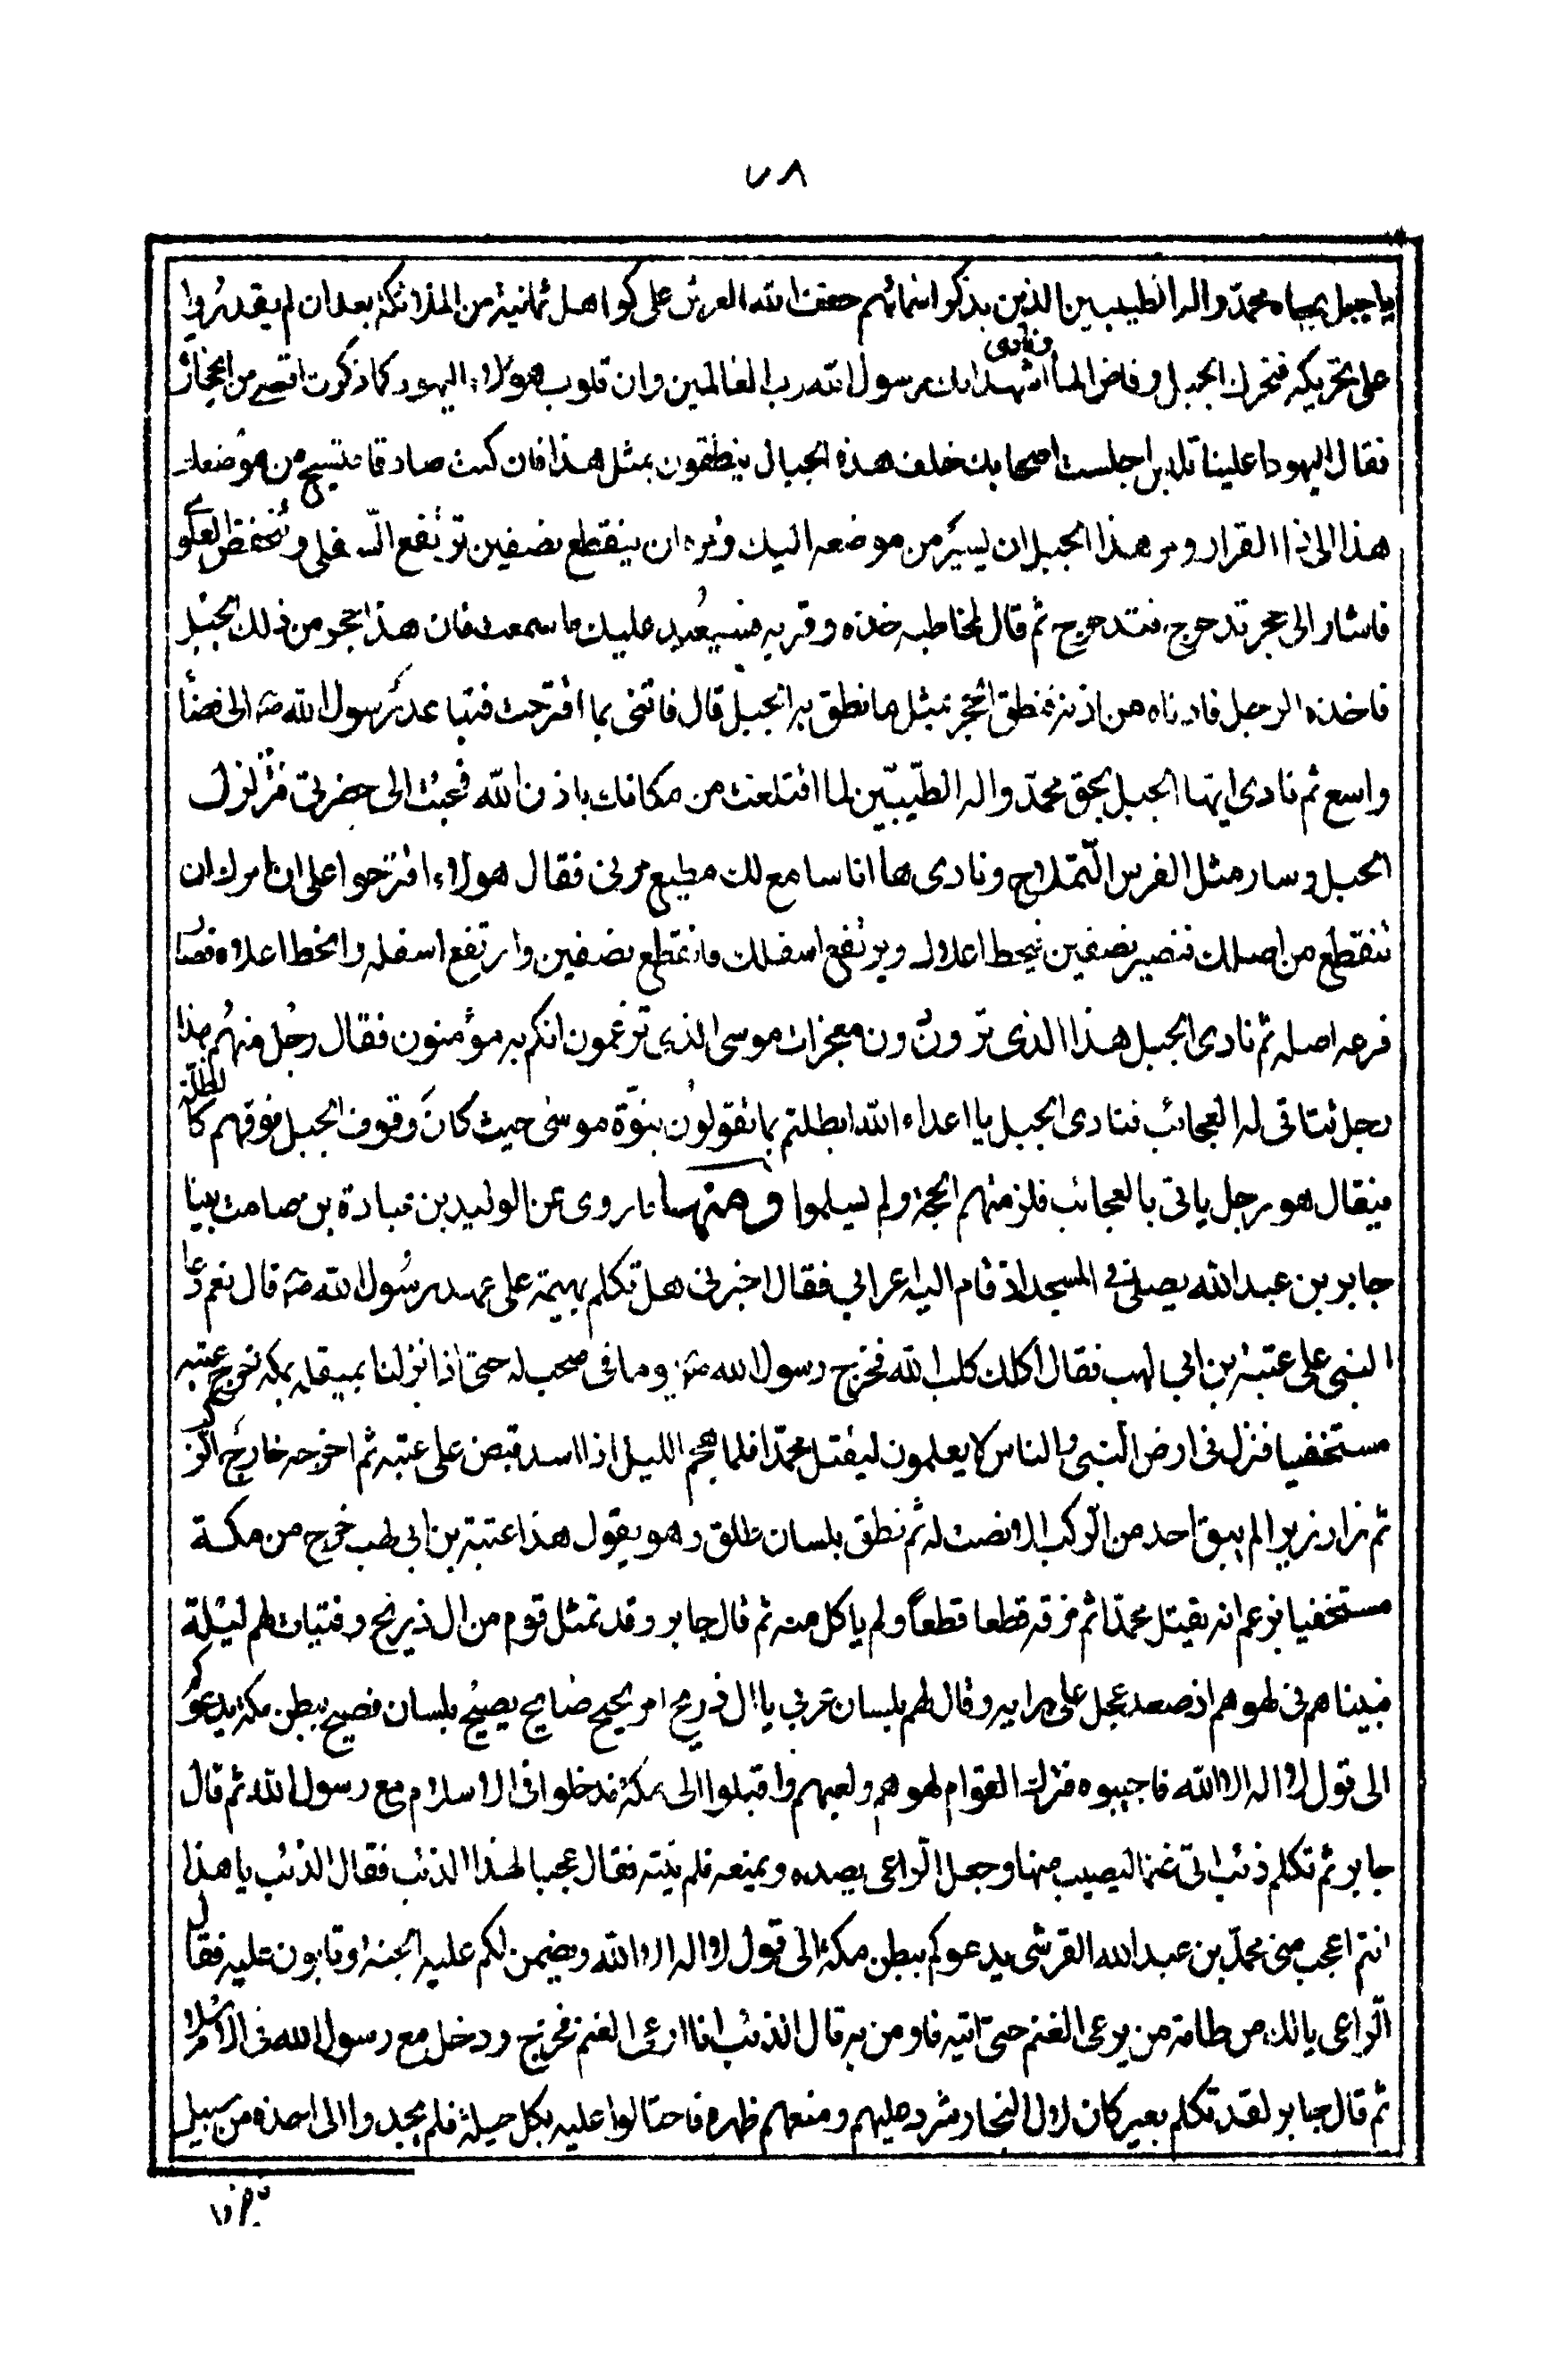 ٧٨
يا جبل بجاه محمّد واله الطيبين الذين بذكر اسمائهم خفف الله العرش على كواهل ثمانية من الملائكة بعد ان لم يقدروا
على تحريكه فتحرك الجبل وفاض الماء ونادى اشهد انك رسول الله رب العالمين وان قلوب هؤلاء اليهود كما ذكرت اقسى من الحجارة
فقال اليهود اعلينا تلبس اجلست اصحابك خلف هذه الجبال ينطقون بمثل هذا فان كنت صادقا فتنح من موضعك
هذا الى ذا القرار ومر هذا الجبل ان يسير من موضعه اليك ومره ان ينقطع نصفين ترتفع السفلى وتنخفض العلو
فاشار الى حجر تدحرج فتدحرج ثم قال لمخاطبه خذه وقربه فسيعيد عليك ما سمعت فان هذا الحجر من ذلك الجبل
فاخذه الرجل فادناه من اذنه فنطق الحجر بمثل ما نطق به الجبل قال فاتنى بما اقترحت فتباعد رسول الله ص الى فضاء
واسع ثم نادى ايها الجبل بحق محمّد واله الطيّبين لما اقتلعت من مكانك باذن الله وجئت الى حضرتى فتزلزل
الجبل وسار مثل الفرس الهملاج ونادى ها انا سامع لك مطيع مرنى فقال هولاء اقترحوا على ان امرك ان
تنقطع من اصلك فتصير نصفين فينحط اعلاك ويرتفع اسفلك فانقطع نصفين وارتفع اسفله وانحط اعلاه فصار
فرعه اصله ثم نادى الجبل هذا الذى ترون دون معجزات موسى الذى تزعمون انكم به مؤمنون فقال رجل منهم هذا
رجل تتاتى له العجائب فنادى الجبل يا اعداء الله ابطلتم بما تقولون نبوّة موسى حيث كان وقوف الجبل فوقهم كالظلة
فيقال هو رجل ياتى بالعجائب فلزمتهم الحجة ولم يسلموا ومنها ما روى عن الوليد بن عبادة بن صامت بينا
جابر بن عبد الله يصلى فى المسجد اذ قام اليه اعرابى فقال اخبرنى هل تكلم بهيمة على عهد رسول الله ص قال نعم دعا
النبى على عتبة بن ابى لهب فقال اكلك كلب الله فخرج رسول الله ص يوما فى صحب له حتى اذا نزلنا بمبقله بمكه خرج عتبه
مستخفيا فنزل فى ارض النبى والناس لا يعلمون ليقتل محمّدا فلما هجم الليل اذا اسد قبض على عتبه ثم اخرجه خارج الركب
ثم زار زيرا لم يبق احد من الركب الا نصت له ثم نطق بلسان طلق وهو يقول هذا عتبة بن ابى لهب خرج من مكة
مستخفيا يزعم انه يقتل محمّدا ثم مزقه قطعا قطعاً ولم ياكل منه ثم قال جابر وقد تمثل قوم من ال ذيريح وفتيات لهم ليلة
فبيناهم فى لهوهم اذ صعد عجل على رابيه وقال لهم بلسان عربى يا ال ذريح امر نجيح صايح يصيح بلسان فصيح ببطن مكة يدعوكم
الى قول لا اله الا الله فاجيبوه فترك القوام لهوهم ولعبهم واقبلوا الى مكة فدخلوا فى الاسلام مع رسول الله ثم قال
جابر ثم تكلم ذئب اتى غنما ليصيب منها وجعل الراعى يصده ويمنعه فلم ينته فقال عجبا لهذا الذئب فقال الذئب يا هذا
انتم اعجب منى محمّد بن عبد الله القرشى يدعوكم ببطن مكة الى قول لا اله الا الله ويضمن لكم عليه الجنة وتابون عليه فقال
الراعى يا لك من طامة من يرعى الغنم حتى اتيه فاومن به قال الذئب انا ارعى الغنم فخرج ودخل مع رسول الله فى الاسلام
ثم قال جابر لقد تكلم بعير كان لال النجار شرد عليهم ومنعهم ظهره فاحتالوا عليه بكل حيلة فلم يجدوا الى اخذه من سبيل